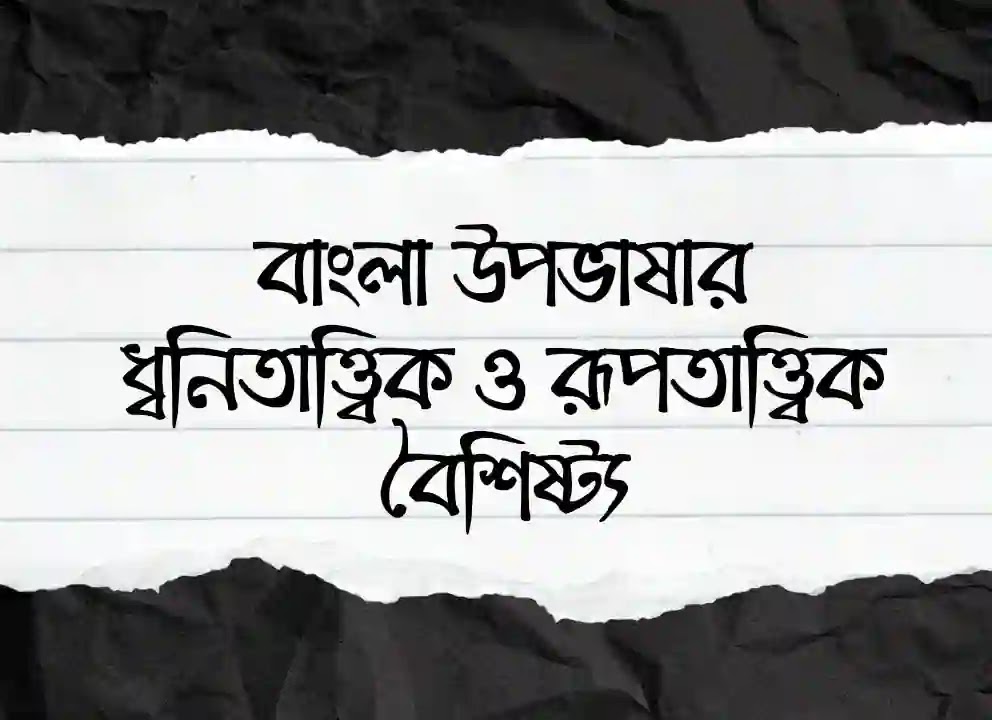 বাংলা উপভাষার
ধ্বনিতাত্ত্বিক ও রূপতাত্ত্বিক
বৈশিষ্ট্য